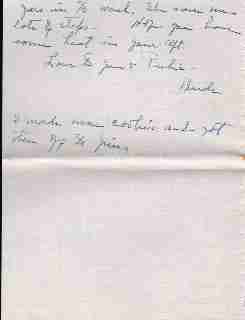 in to work. She saves me
lots of steps. Hope you have
some heat in your apt.
Love to you &
I made some cookies and got
them off to